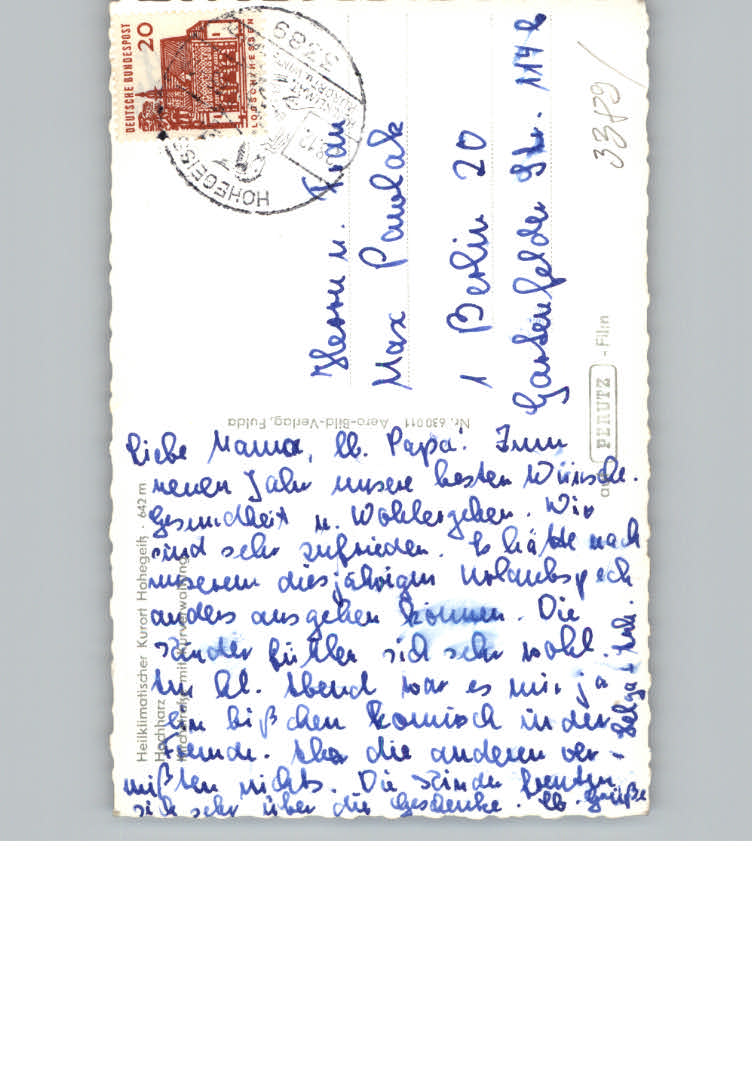 Liebe Mama, lb. Papa! Zum
neuen Jahr unsere besten Wünsche.
Gesundheit u. Wohlergehen. Wir
sind sehr zufrieden. Es hätte nach
unserem diesjährigen Urlaubspech
anders ausgehen können. Die
Kinder fühlen sich sehr wohl.
Am hl. Abend war es mir ja
ein bißchen komisch in der
Fremde. Aber die anderen ver-
mißten nichts. Die Kinder freuten
sich sehr über die Geschenke. lb. Grüße
Helga +
Herrn u. Frau
Max Pawlak
1 Berlin 20
Gartenfelder Str. 114
3389
DEUTSCHE BUNDESPOST
20
LORSCH/HESSEN
3389
HOHEGEISS
Nr. 630 011 Aero-Bild-Verlag, Fulda
Heilklimatischer Kurort Hohegeiß · 642 m
Hochharz
mit Kurverwaltung
auf PERUTZ - Film